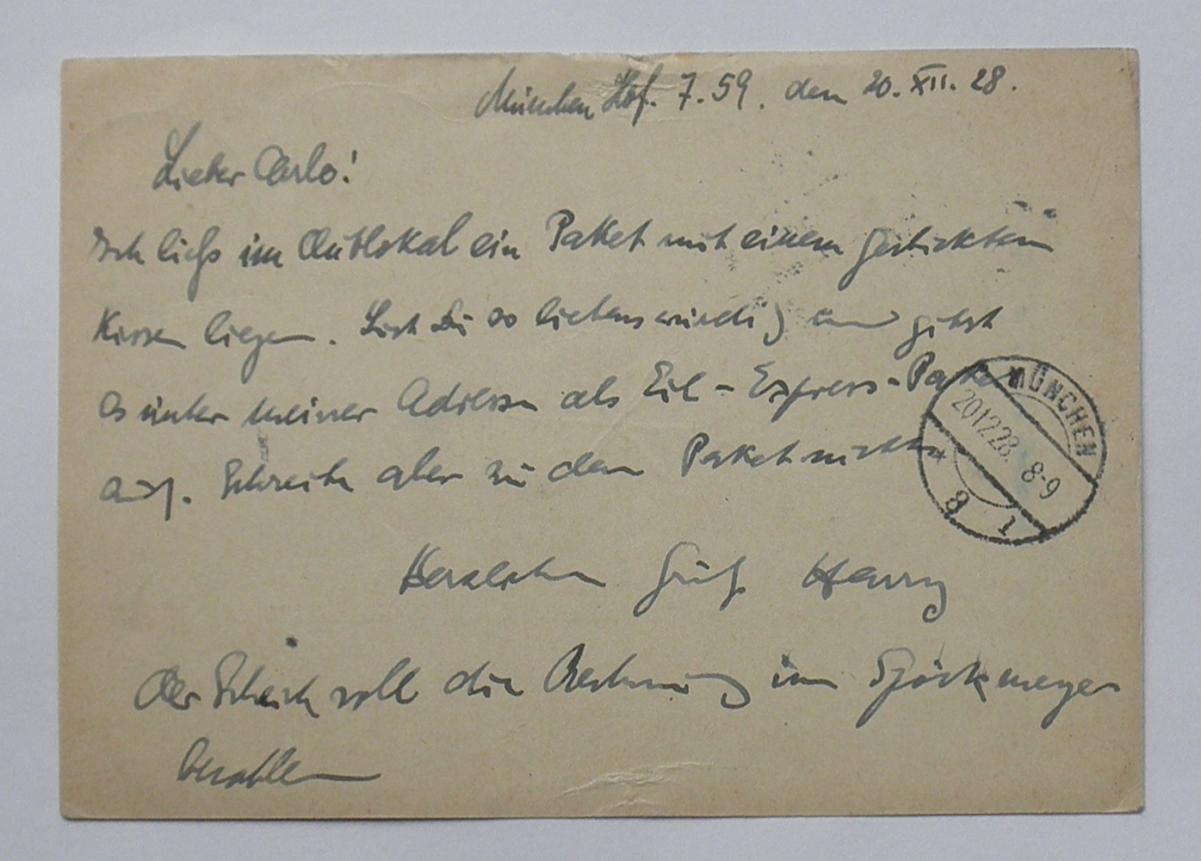 München Hbf. 7.59. den 20. XII. 28.
Lieber Carlo!
Ich ließ im Amtlokal ein Paket mit einem gestickten
Kissen liegen. Bist Du so liebenswürdig und gibst
es unter meiner Adresse als Eil-Express-Paket
auf. Schreibe aber zu dem Paket nichts
Herzlichen Gruß Henry
Der Scheich soll die Rechnung im Spöckmeyer
bezahlen
MÜNCHEN
20.12.28. 8-9
* 8 1